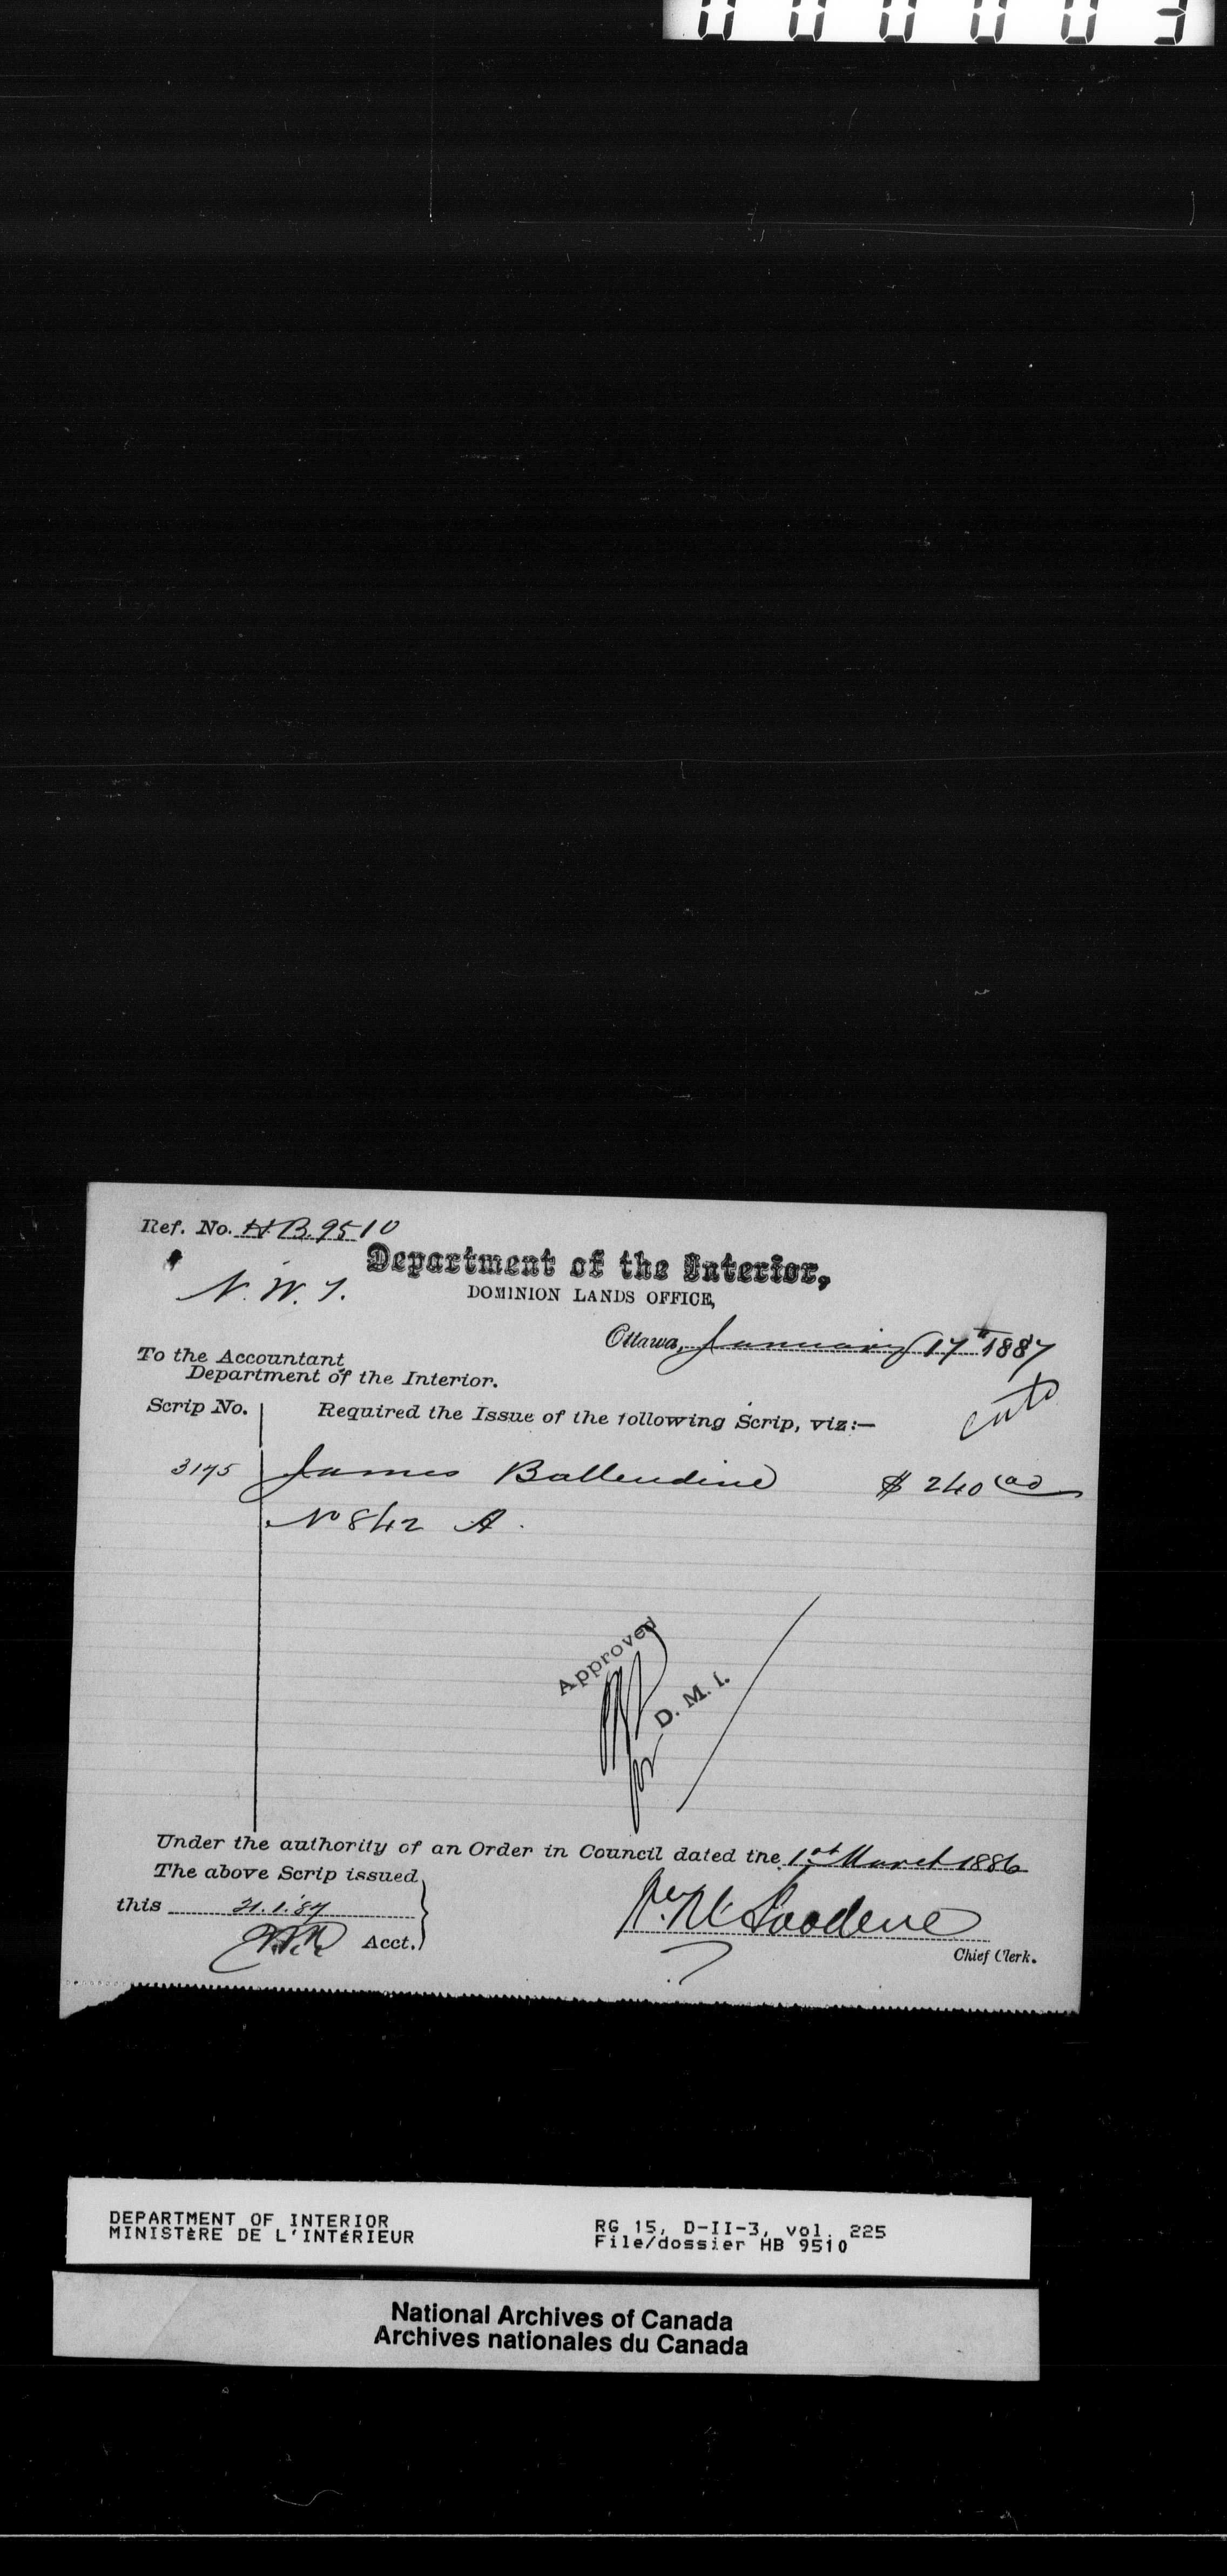 000003
Ref. No. H.B. 9510
Department of the Interior,
N. W. T.
DOMINION LANDS OFFICE,
Ottawa, January 17th 1887
To the Accountant
Department of the Interior.
Scrip No.
Required the Issue of the following Scrip, viz:—
3175 James Ballendine $ 240 00
No 842 A.
Approved
for D. M. I.
Under the authority of an Order in Council dated the 1st March 1886
The above Scrip issued
this 21.1.'87
Acct.
Chief Clerk.
DEPARTMENT OF INTERIOR
MINISTÈRE DE L'INTÉRIEUR
RG 15, D-II-3, vol. 225
File/dossier HB 9510
National Archives of Canada
Archives nationales du Canada